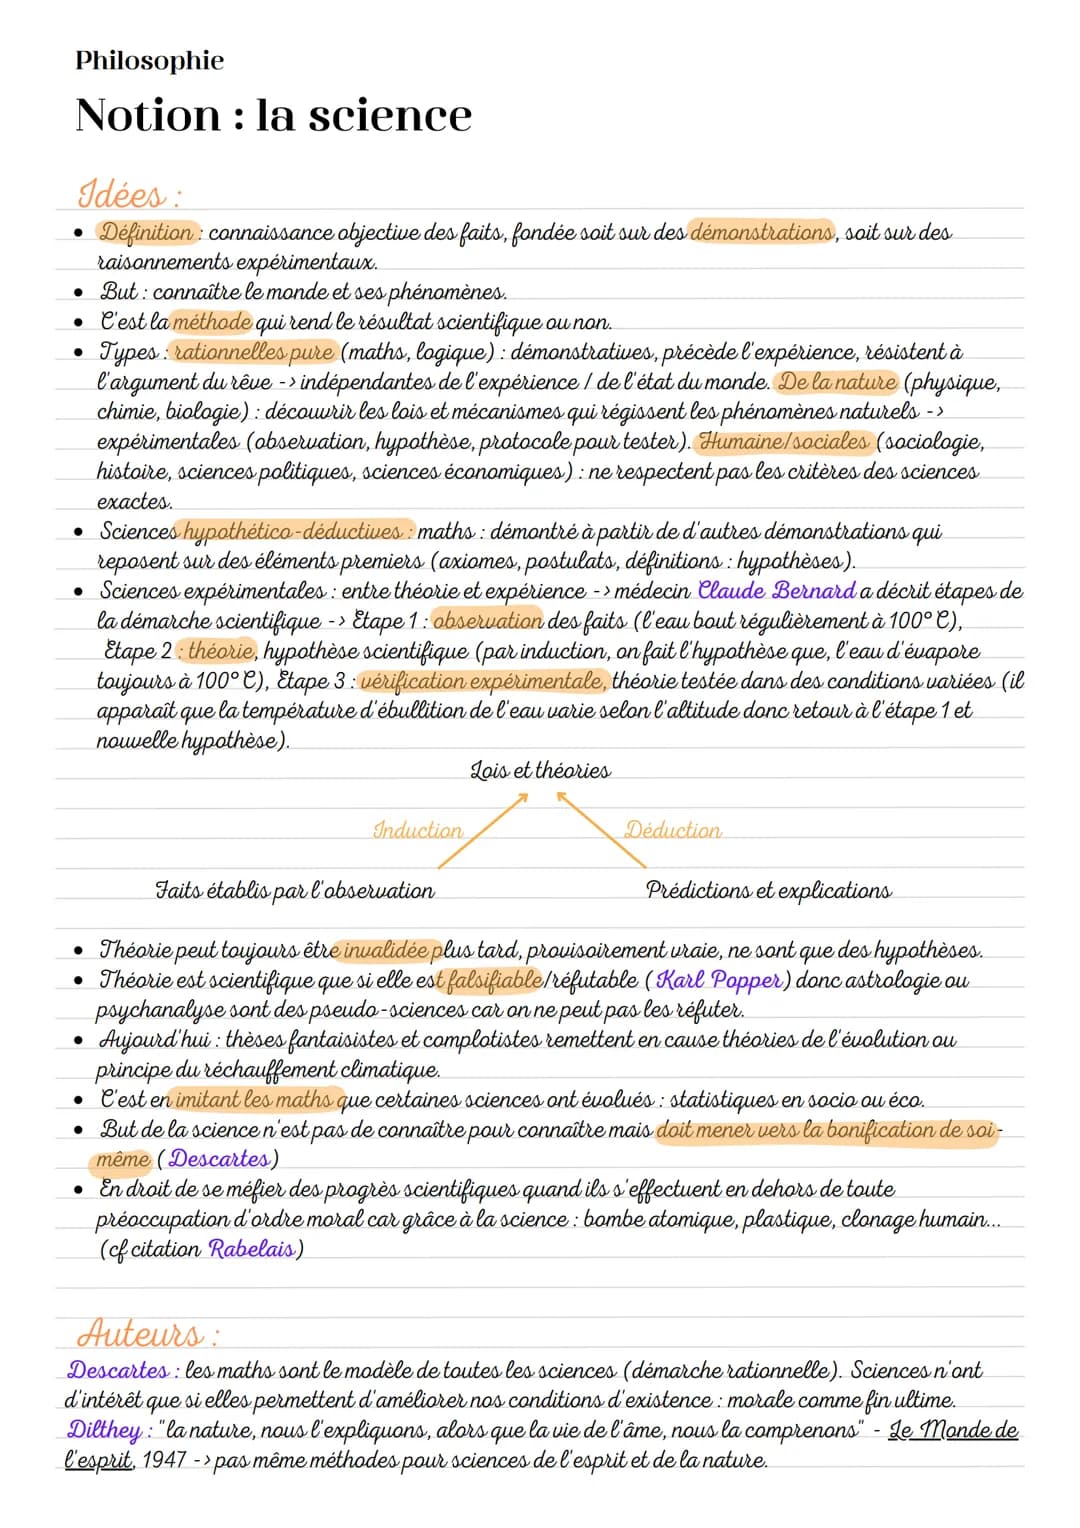 Philosophie
Notion : la science
Idées :
• Définition : connaissance objective des faits, fondée soit sur des démonstrations, soit sur des
raisonnements expérimentaux.
• But : connaître le monde et ses phénomènes.
• C'est la méthode qui rend le résultat scientifique ou non.
• Types : rationnelles pure (maths, logique) : démonstratives, précède l'expérience, résistent à
l'argument du rêve -> indépendantes de l'expérience / de l'état du monde. De la nature (physique,
chimie, biologie) : découvrir les lois et mécanismes qui régissent les phénomènes naturels ->
expérimentales (observation, hypothèse, protocole pour tester). Humaine/sociales (sociologie,
histoire, sciences politiques, sciences économiques) : ne respectent pas les critères des sciences
exactes.
• Sciences hypothético-déductives : maths : démontré à partir de d'autres démonstrations qui
reposent sur des éléments premiers (axiomes, postulats, définitions : hypothèses).
• Sciences expérimentales : entre théorie et expérience -> médecin Claude Bernard a décrit étapes de
la démarche scientifique -> Étape 1 : observation des faits (l'eau bout régulièrement à 100°C),
Étape 2 : théorie, hypothèse scientifique (par induction, on fait l'hypothèse que, l'eau d'évapore
toujours à 100°C), Étape 3 : vérification expérimentale, théorie testée dans des conditions variées (il
apparaît que la température d'ébullition de l'eau varie selon l'altitude donc retour à l'étape 1 et
nouvelle hypothèse).
Lois et théories
Induction Déduction
Faits établis par l'observation Prédictions et explications
• Théorie peut toujours être invalidée plus tard, provisoirement vraie, ne sont que des hypothèses.
• Théorie est scientifique que si elle est falsifiable/réfutable (Karl Popper) donc astrologie ou
psychanalyse sont des pseudo-sciences car on ne peut pas les réfuter.
• Aujourd'hui : thèses fantaisistes et complotistes remettent en cause théories de l'évolution ou
principe du réchauffement climatique.
• C'est en imitant les maths que certaines sciences ont évolués : statistiques en socio ou éco.
• But de la science n'est pas de connaître pour connaître mais doit mener vers la bonification de soi-
même (Descartes)
• En droit de se méfier des progrès scientifiques quand ils s'effectuent en dehors de toute
préoccupation d'ordre moral car grâce à la science : bombe atomique, plastique, clonage humain...
(cf citation Rabelais)
Auteurs :
Descartes : les maths sont le modèle de toutes les sciences (démarche rationnelle). Sciences n'ont
d'intérêt que si elles permettent d'améliorer nos conditions d'existence : morale comme fin ultime.
Dilthey : "la nature, nous l'expliquons, alors que la vie de l'âme, nous la comprenons" - Le Monde de
l'esprit, 1947 -> pas même méthodes pour sciences de l'esprit et de la nature.